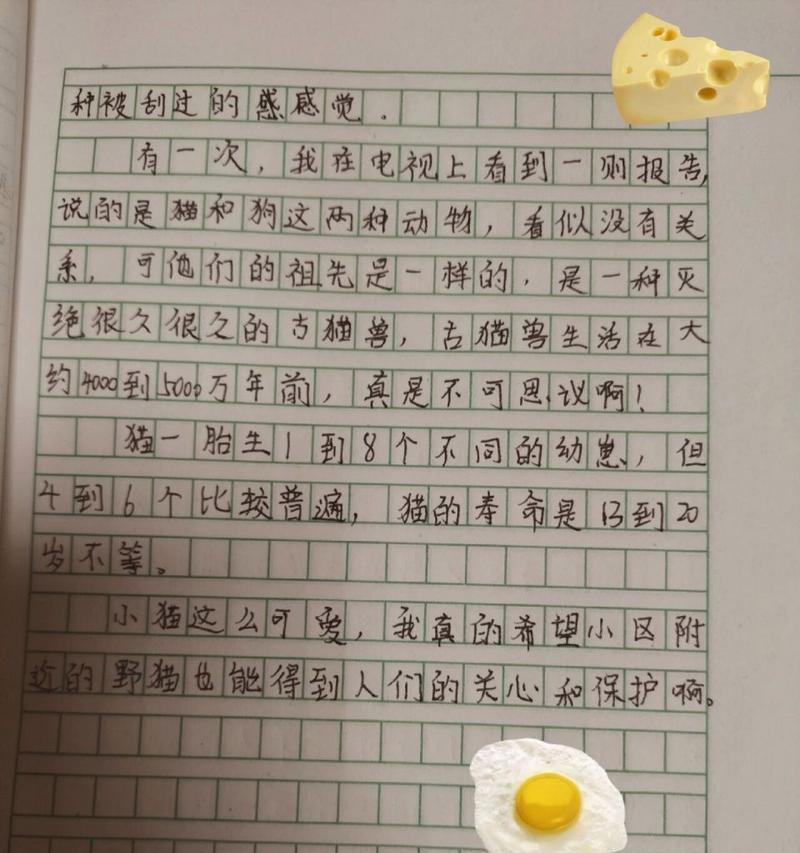 种被刮过的感感觉.
有一次，我在电视上看到一则报告，
说的是猫和狗这两种动物，看似没有关
系，可他们的祖先是一样的，是一种灭
绝很久很久的古猫兽，古猫兽生活在大
约4000到5000万年前，真是不可思议啊！
猫一胎生1到8个不同的幼崽，但
4到6个比较普遍，猫的寿命是13到20
岁不等。
小猫这么可爱，我真的希望小区附
近的野猫也能得到人们的关心和保护啊。